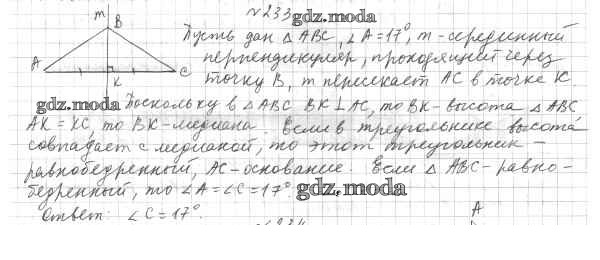 №233
gdz.moda
m
B
A
K
C
Пусть дан △ABC, ∠A=17°, m - серединный
перпендикуляр, проходящий через
точку B, m пересекает AC в точке K.
gdz.moda Поскольку в △ABC BK⊥AC, то BK-высота △ABC
AK=KC, то BK-медиана. Если в треугольнике высота
совпадает с медианой, то этот треугольник -
равнобедренный, AC-основание. Если △ABC-равно-
бедренный, то ∠A=∠C=17°. gdz.moda
Ответ: ∠C=17°.
A